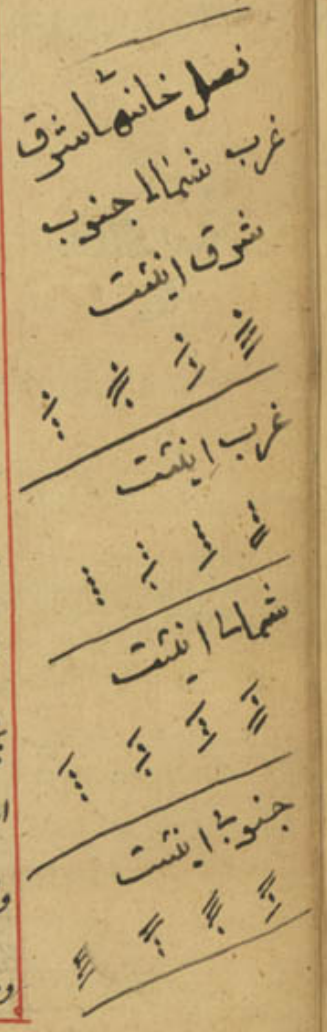 فصل خانهٔا شرق
غرب شمالا جنوب
شرق اینست
غرب اینست
شمالا اینست
جنوب اینست